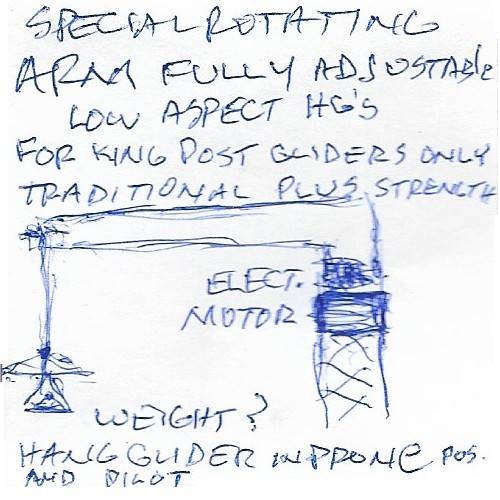 SPECIAL ROTATING
ARM FULLY ADJUSTABLE
LOW ASPECT HG'S
FOR KING POST GLIDERS ONLY
TRADITIONAL PLUS STRENGTH
ELECT.
MOTOR
WEIGHT?
HANG GLIDER IN PRONE POS.
AND PILOT